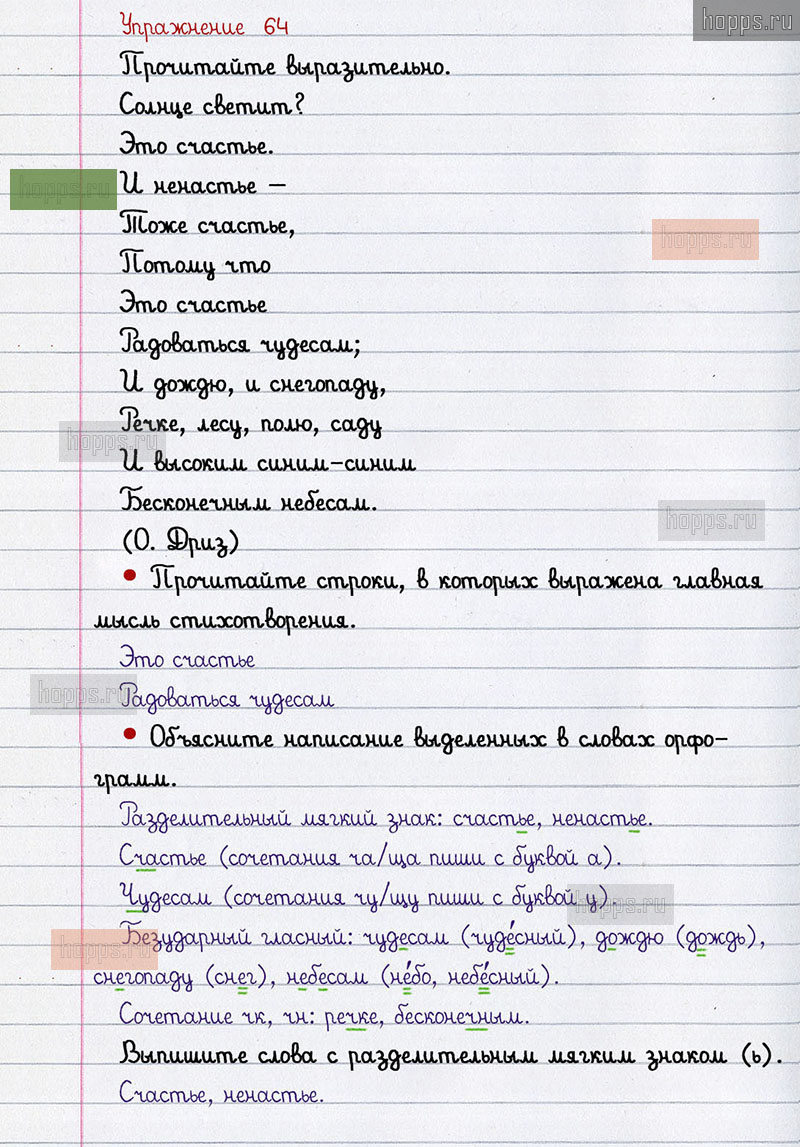 Упражнение 64
hopps.ru
Прочитайте выразительно.
Солнце светит?
Это счастье.
И ненастье –
hopps.ru
Тоже счастье,
hopps.ru
Потому что
Это счастье
Радоваться чудесам;
И дождю, и снегопаду,
Речке, лесу, полю, саду
hopps.ru
И высоким синим-синим
Бесконечным небесам.
hopps.ru
(О. Дриз)
• Прочитайте строки, в которых выражена главная
мысль стихотворения.
Это счастье
Радоваться чудесам
hopps.ru
• Объясните написание выделенных в словах орфо-
грамм.
Разделительный мягкий знак: счастье, ненастье.
Счастье (сочетания ча/ща пиши с буквой а).
Чудесам (сочетания чу/щу пиши с буквой у).
hopps.ru
Безударный гласный: чудесам (чуде́сный), дождю (дождь),
hopps.ru
снегопаду (снег), небесам (не́бо, небе́сный).
Сочетание чк, чн: речке, бесконечным.
Выпишите слова с разделительным мягким знаком (ь).
Счастье, ненастье.